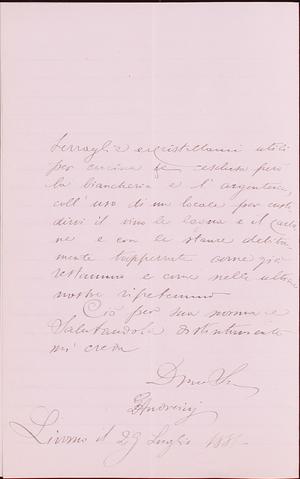 terraglie e cristallami utili
per cucina e esclusa però
la biancheria e l'argenteria,
coll'uso di un locale per cust
dirvi il vino la legna e il carbo
ne e con le stanze debita
mente tapperate come già
restammo e come nelle ultime
nostre ripetemmo
Ciò per sua norma e
Salutandola distintamente
mi creda
Livorno il 29 Luglio 188